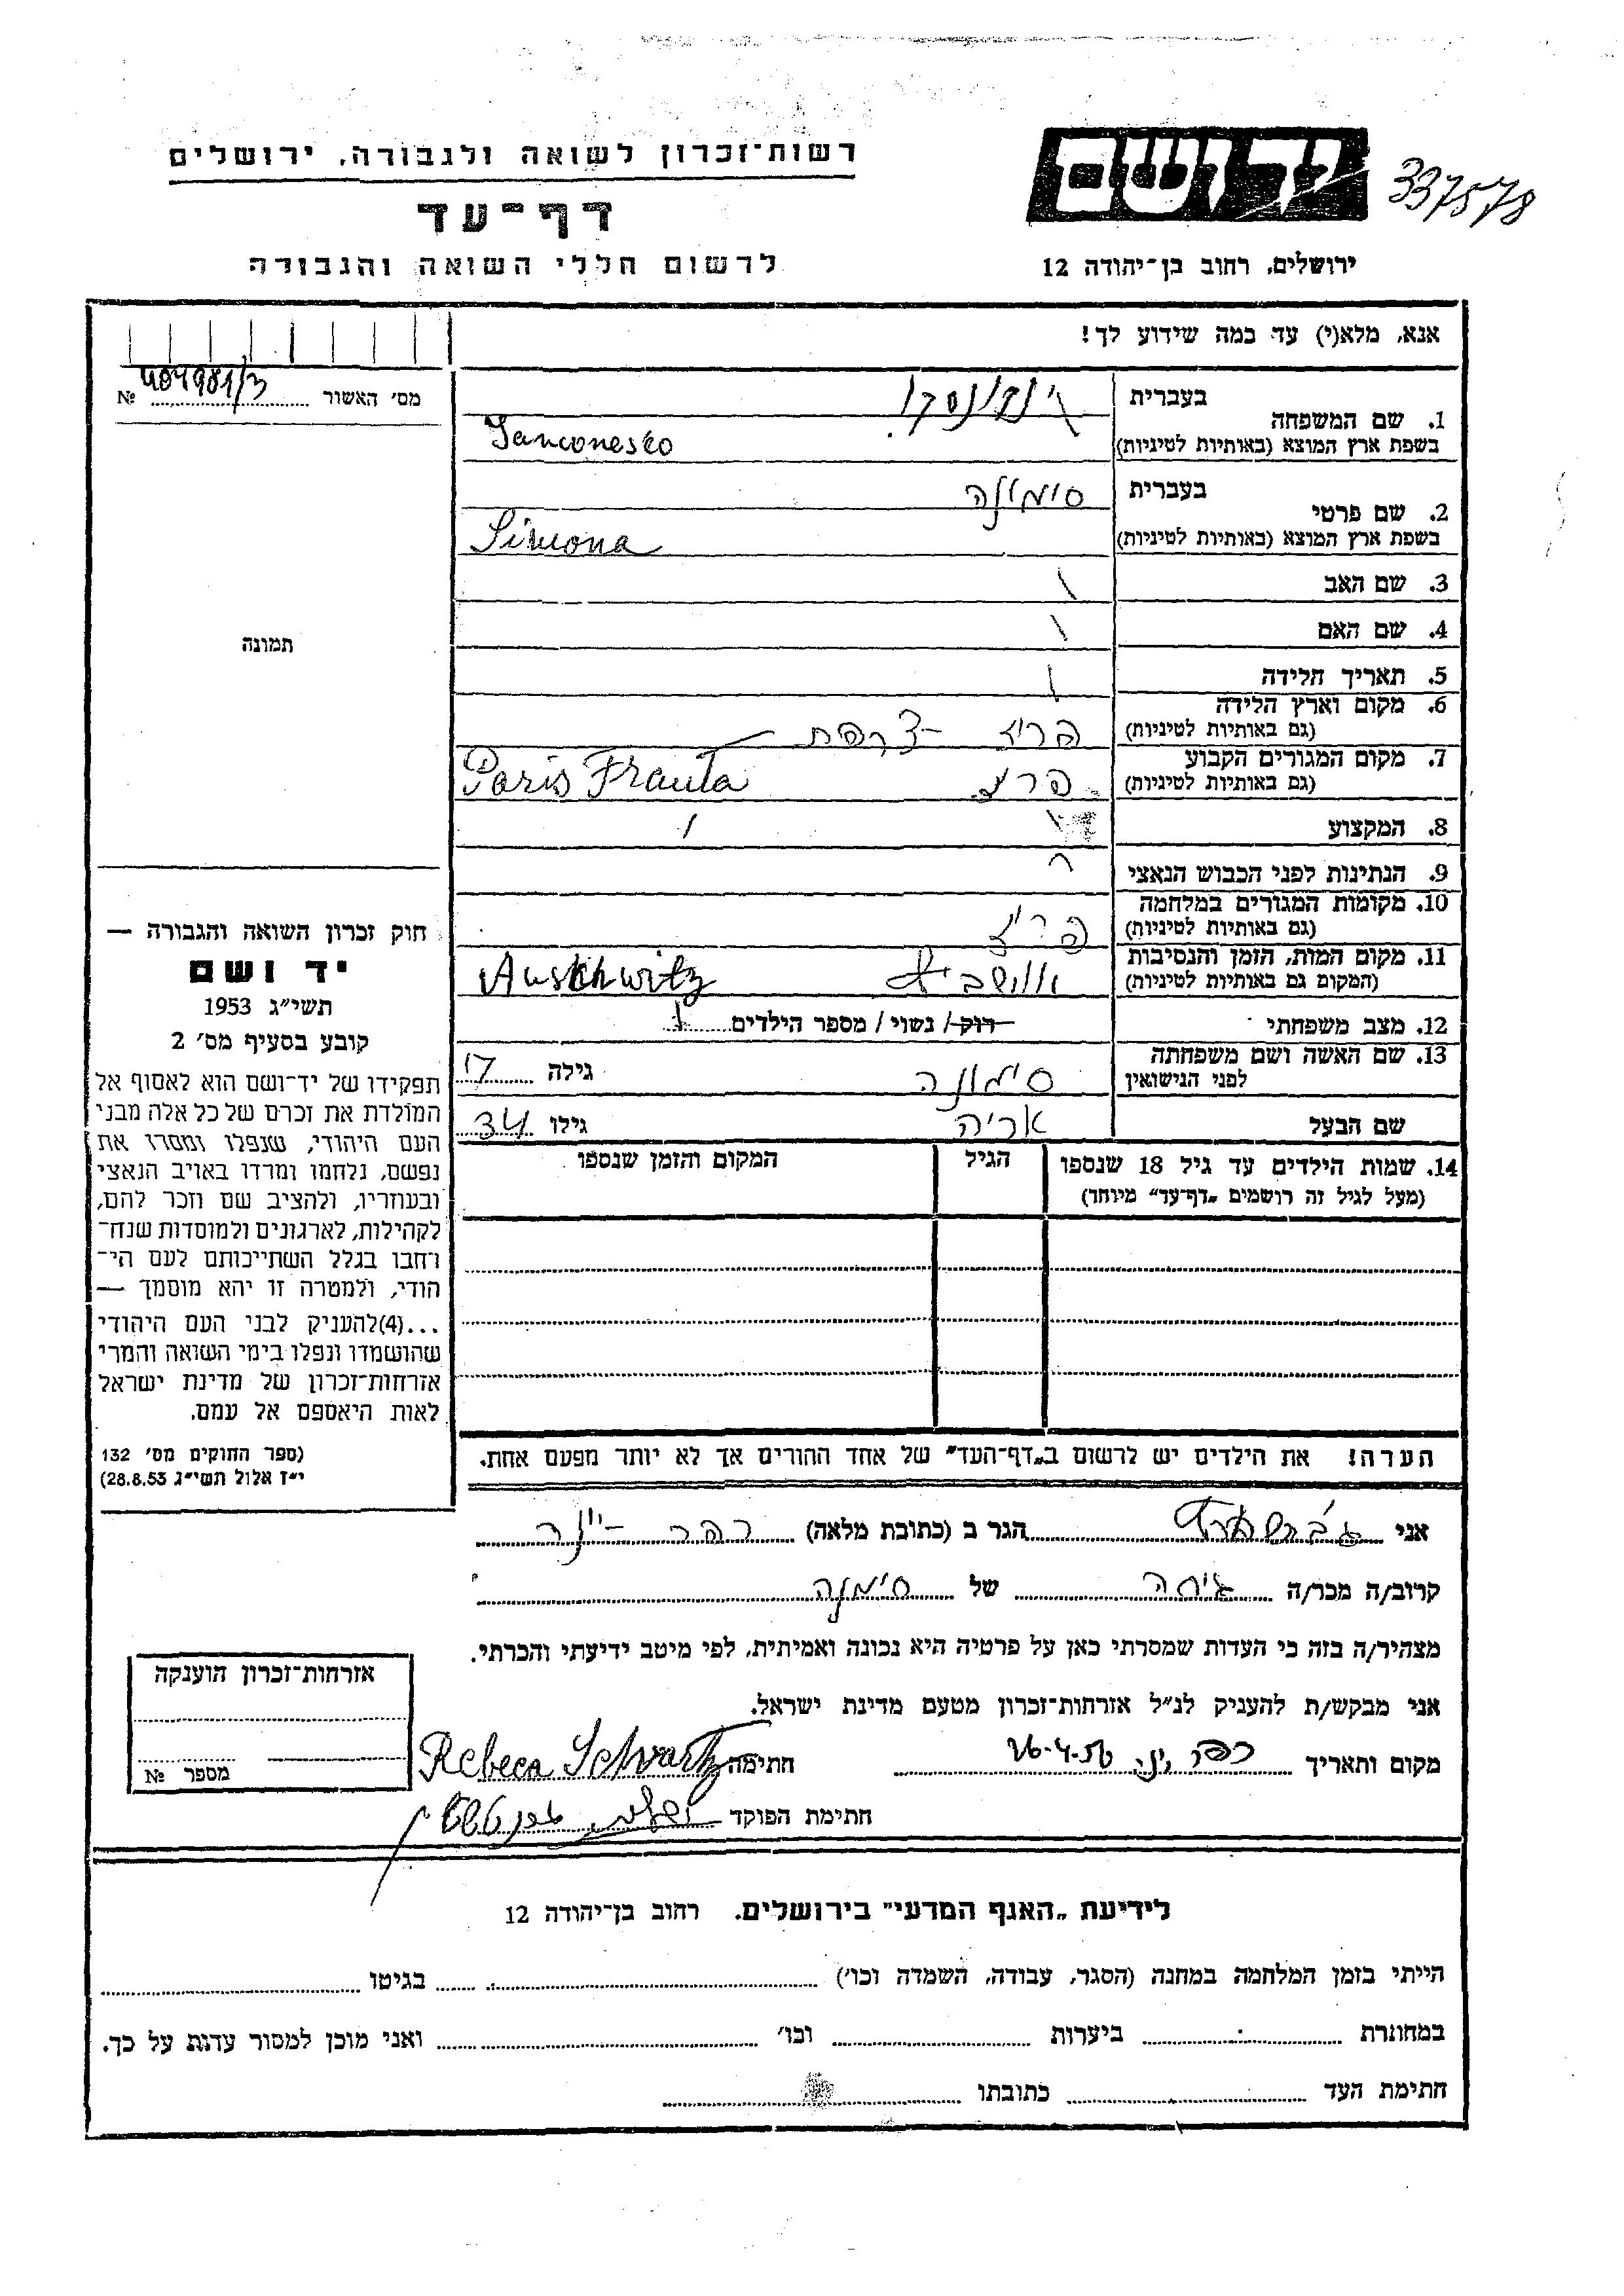 רשות־זכרון לשואה ולגבורה, ירושלים
יד ושם
337578
דף־עד
לרשום חללי השואה והגבורה
ירושלים, רחוב בן־יהודה 12
אנא, מלא(י) עד כמה שידוע לך!
מס׳ האשור № 404981/3
1. שם המשפחה
בעברית
בשפת ארץ המוצא (באותיות לטיניות)
Janconesko
2. שם פרטי
בעברית סימונה
בשפת ארץ המוצא (באותיות לטיניות) Simona
3. שם האב \
4. שם האם \
5. תאריך הלידה \
6. מקום וארץ הלידה
(גם באותיות לטיניות) פריז - צרפת
7. מקום המגורים הקבוע
(גם באותיות לטיניות) פריז Paris Franta
8. המקצוע
9. הנתינות לפני הכבוש הנאצי
10. מקומות המגורים במלחמה
(גם באותיות לטיניות) פריז
11. מקום המות, הזמן והנסיבות
(המקום גם באותיות לטיניות) Auschwitz
12. מצב משפחתי רוק / נשוי / מספר הילדים
13. שם האשה ושם משפחתה
לפני הנישואין סימונה גילה 17
שם הבעל אריה גילו 34
14. שמות הילדים עד גיל 18 שנספו
(מעל לגיל זה רושמים „דף־עד״ מיוחד)
הגיל
המקום והזמן שנספו
הערה! את הילדים יש לרשום ב„דף־העד״ של אחד ההורים אך לא יותר מפעם אחת.
תמונה
חוק זכרון השואה והגבורה —
יד ושם
תשי״ג 1953
קובע בסעיף מס׳ 2
תפקידו של יד־ושם הוא לאסוף אל
המולדת את זכרם של כל אלה מבני
העם היהודי, שנפלו ומסרו את
נפשם, נלחמו ומרדו באויב הנאצי
ובעוזריו, ולהציב שם וזכר להם,
לקהילות, לארגונים ולמוסדות שנח־
רחבו בגלל השתייכותם לעם הי־
הודי, ולמטרה זו יהא מוסמך —
...(4) להעניק לבני העם היהודי
שהושמדו ונפלו בימי השואה והמרי
אזרחות־זכרון של מדינת ישראל
לאות היאספם אל עמם.
(ספר החוקים מס׳ 132
י״ז אלול תשי״ג 28.8.53)
אני הגר ב (כתובת מלאה) כפר - יונה
קרוב/ה מכר/ה גיסה של סימונה
מצהיר/ה בזה כי העדות שמסרתי כאן על פרטיה היא נכונה ואמיתית, לפי מיטב ידיעתי והכרתי.
אני מבקש/ת להעניק לנ״ל אזרחות־זכרון מטעם מדינת ישראל.
מקום ותאריך 26-4-56 חתימה Rebeca Schvartz
חתימת הפוקד
אזרחות־זכרון הוענקה
מספר №
לידיעת „האגף המדעי״ בירושלים, רחוב בן־יהודה 12
הייתי בזמן המלחמה במחנה (הסגר, עבודה, השמדה וכו׳) בגיטו
במחתרת ביערות וכו׳ ואני מוכן למסור עדות על כך.
חתימת העד כתובתו